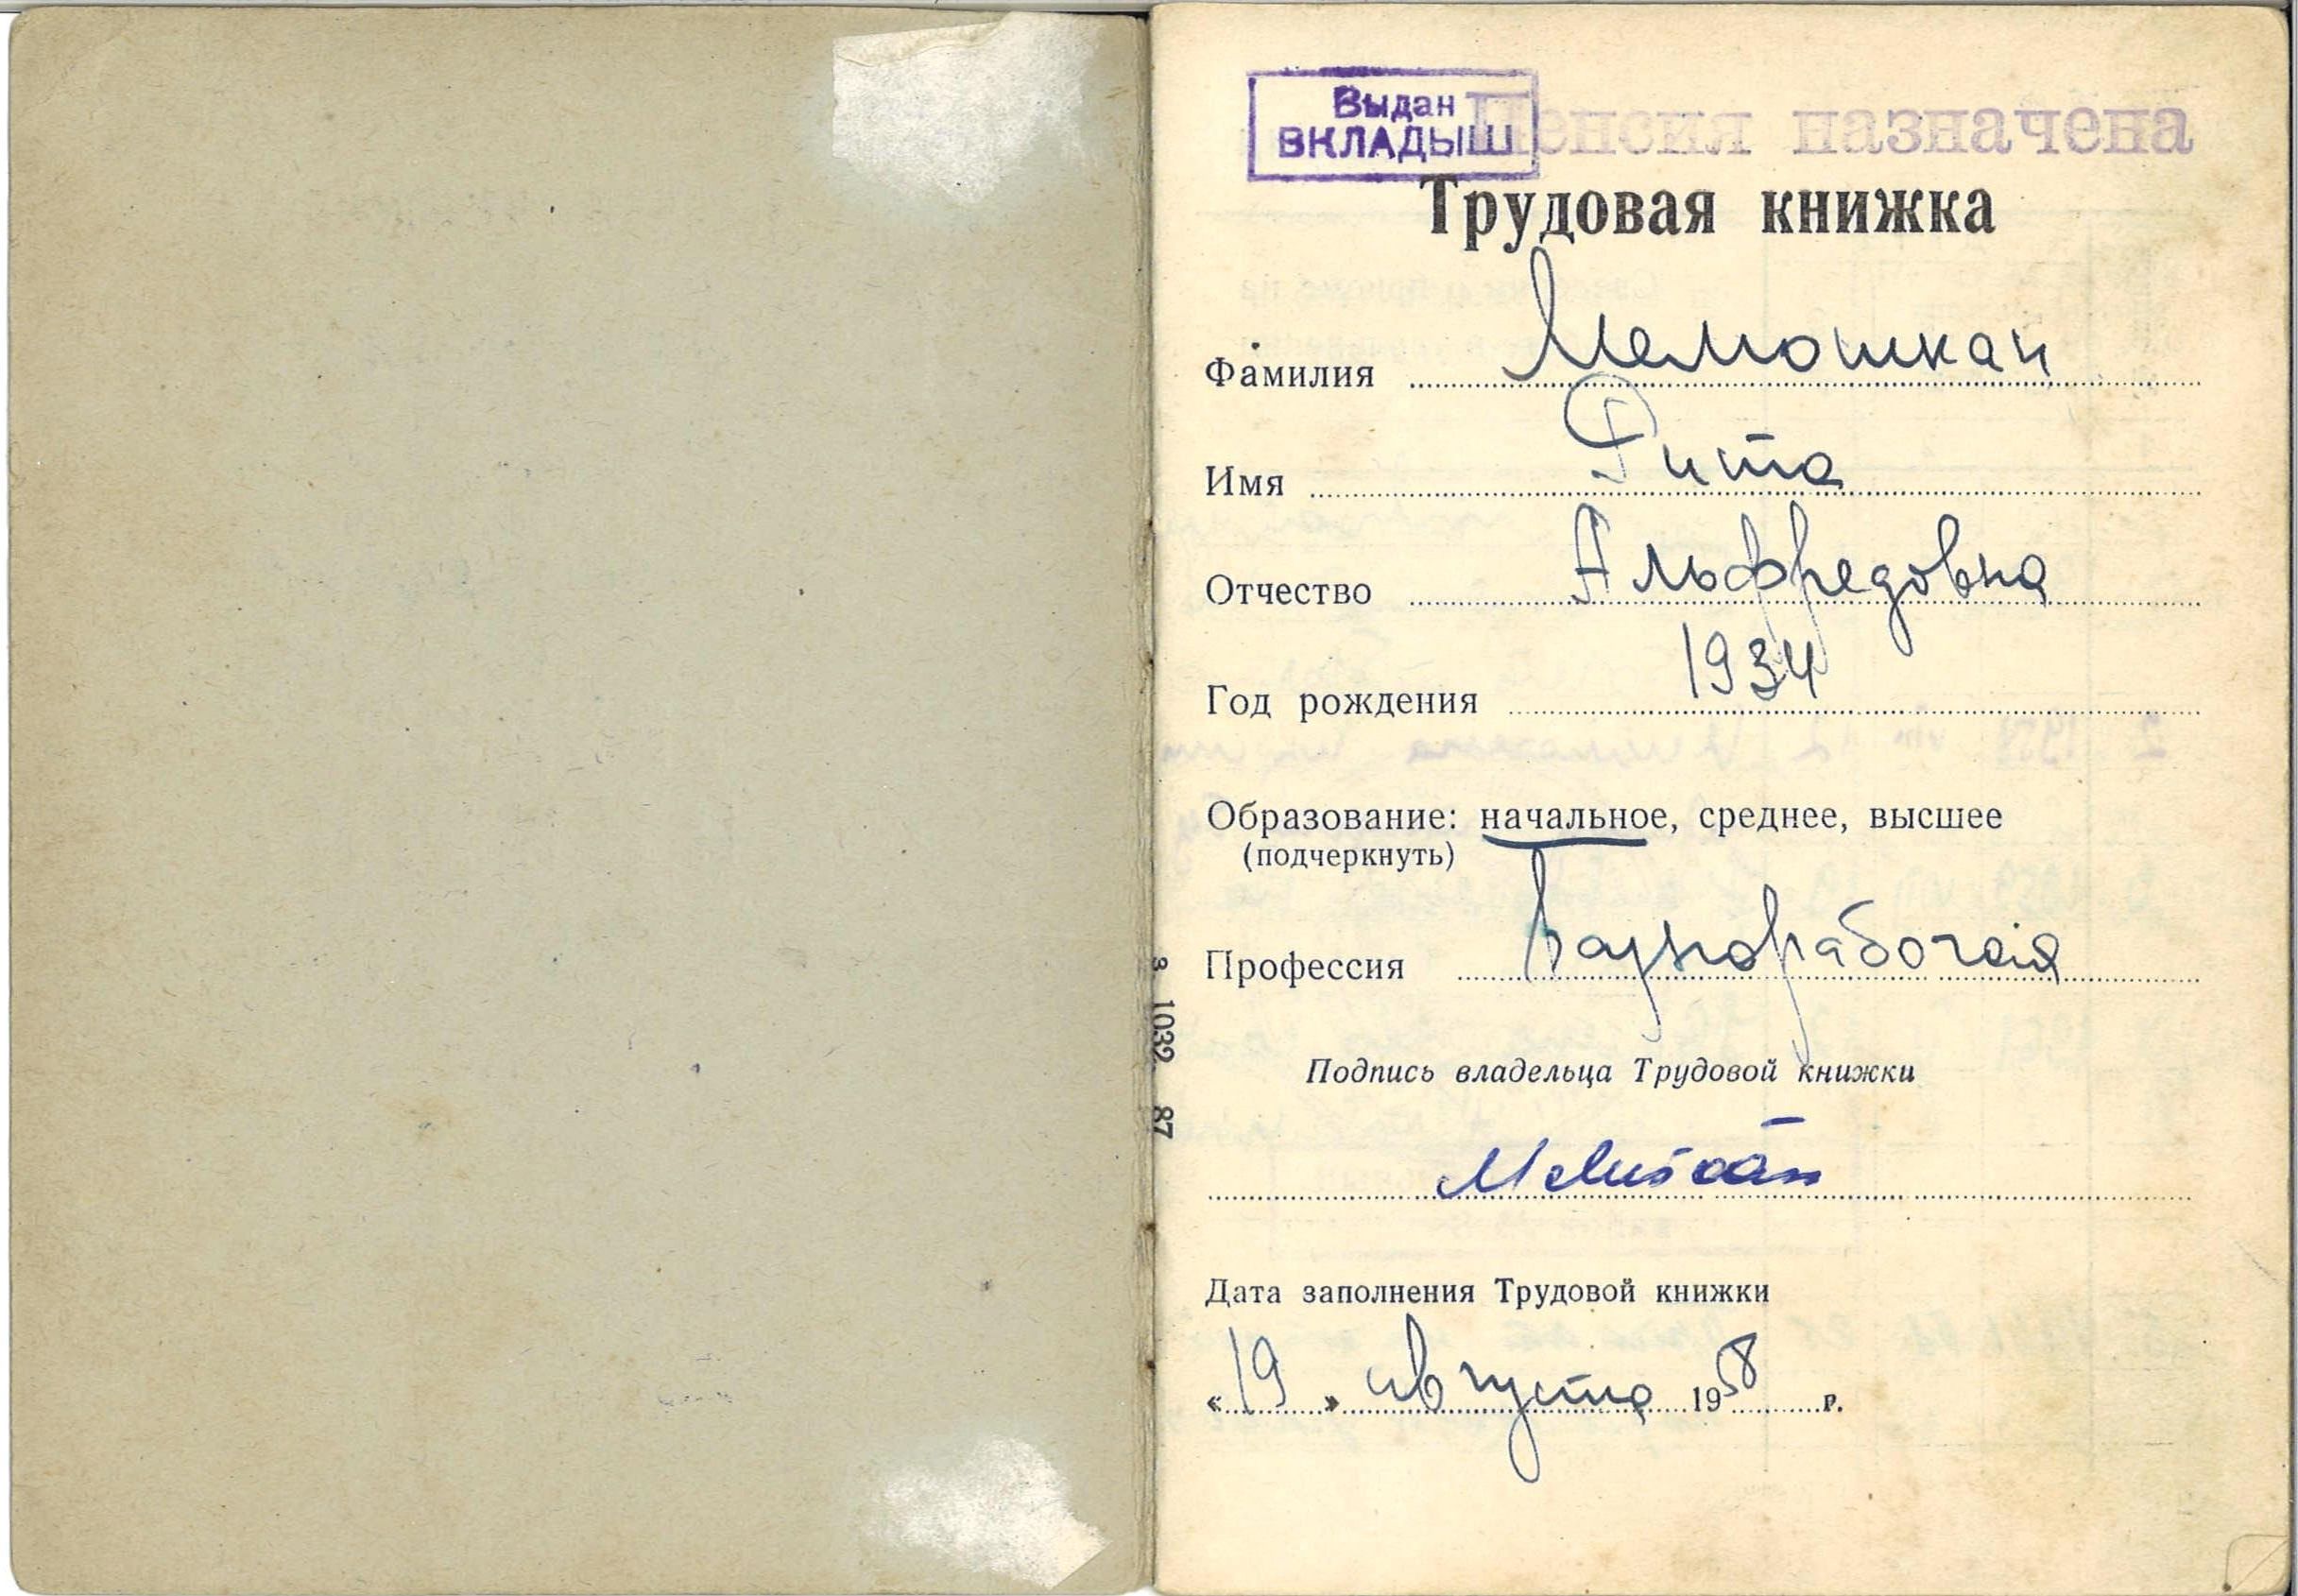 Выдан
ВКЛАДЫШ
Пенсия назначена
Трудовая книжка
Фамилия Мелюшкан
Имя Рита
Отчество Альфредовна
Год рождения 1934
Образование: начальное, среднее, высшее
(подчеркнуть)
Профессия Разнорабочая
Подпись владельца Трудовой книжки
Дата заполнения Трудовой книжки
«19» августа 1958 г.
З 1032 87